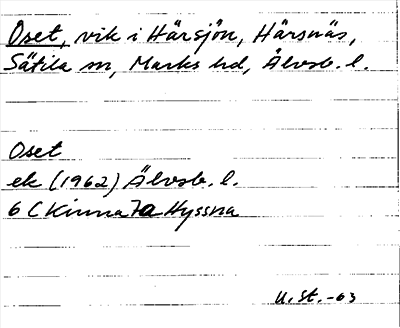 Oset, vik i Härsjön, Härsnäs,
Sätila sn, Marks hd, Älvsb. l.
Oset
ek (1962) Älvsb. l.
6 C Kinna 7a Hyssna
U. St. -63